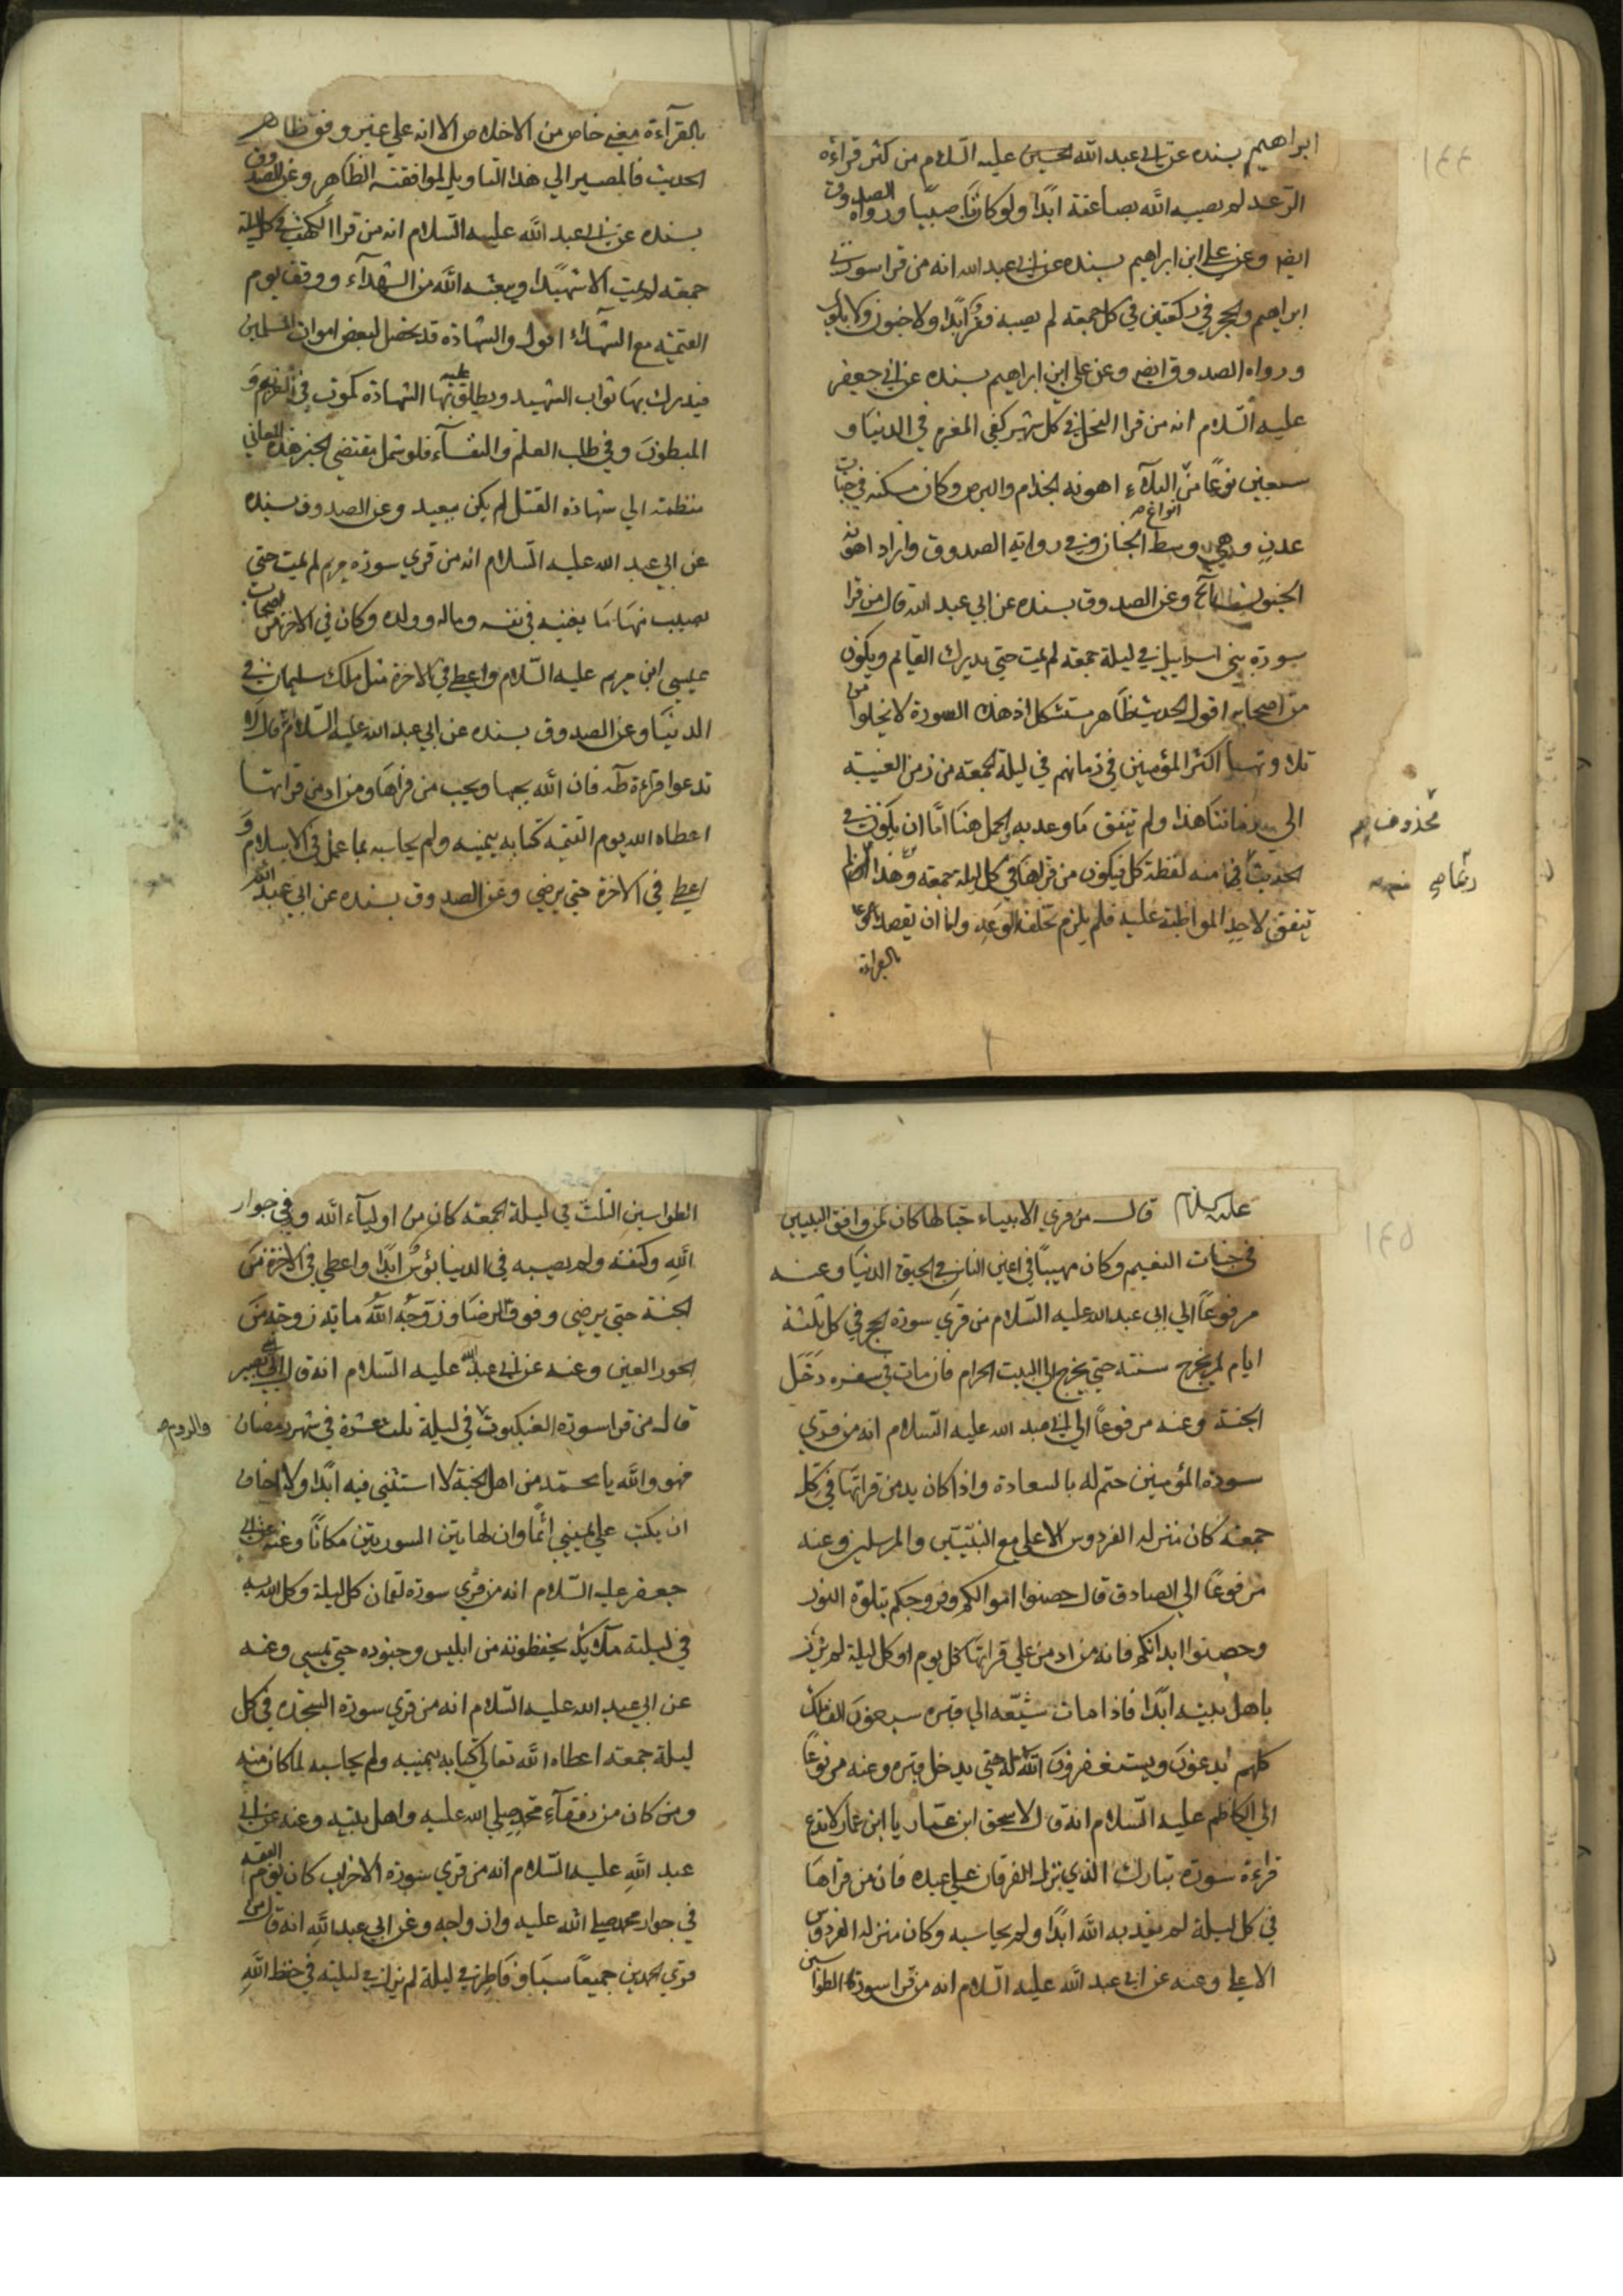 ١٤٤
ابراهيم بسنده عن ابي عبد الله الحسين عليه السلام من كثر قراءة
الرعد لم يصيبه الله بصاعقة ابدًا ولو كان ورواه الصدوق
ايضا وعن علي ابن ابراهيم بسنده عن ابي عبد الله انه من قرا سورتي
ابراهيم والحجر في ركعتين في كل جمعة لم يصيبه فقر ابدًا ولا جنون ولا بلوى
ورواه الصدوق ايضا وعن علي ابن ابراهيم بسنده عن ابي جعفر
عليه السّلام انه من قرا النحل في كل شهر كفي المغرم في الدنيا و
سبعين نوعًا من انواع البلآء اهونه الجذام والبرص وكان مسكنه في جنات
عدن وهي وسط الجنان وفي رواية الصدوق وازاد اهونه
الجنون وعن الصدوق بسنده عن ابي عبد الله قال من قرا
سورة بني اسراييل في ليلة جمعة لم يمت حتي يدرك القايم ويكون
من اصحابه اقول الحديث ظاهر مستشكل اذ هذه السورة لا يخلوا من
تلاوتها اكثر المؤمنين في زمانهم في ليلة الجمعة من زمن الغيبة
الى زماننا هذا ولم تتفق ما وعد به هنا امّا ان يكون في
محذوف
الحديث منه لفظة كل فيكون من قراها في كل ليلة جمعة وهذا
تتفق لاحد المواظبة عليه فلم يلزم تخلف الوعد واما ان يقصد
بالقراءة
بالقرآءة معني خاص من الاخلاص الا انه علي غير وفق ظاهر
الحديث فالمصير الي هذا التاويل لموافقته الظاهر وعن الصدوق
بسنده عن ابي عبد الله عليه السّلام انه من قرا الكهف في كل ليلة
جمعة لم يمت الا شهيدًا ويبعثه الله من الشهدآء ووقف يوم
القيمة مع الشهدآء اقول والشهادة قد تحصل لبعض اموات المسلمين
فيدرك بها ثواب الشهيد ويطلق عليه بها الشهادة كموت و
المبطون وفي طلب العلم والنفسآء فلو شمل مقتضي الخبر هذه المعاني
منظمة الي شهادة القتل لم يكن ببعيد وعن الصدوق بسنده
عن ابي عبد الله عليه السّلام انه من قري سورة مريم لم يمت حتي
يصيب منها ما يغنيه في نفسه وماله وولده وكان في الاخرة من اصحاب
عيسي ابن مريم عليه السّلام واعطي في الاخرة مثل ملك سليمان في
الدنيا وعن الصدوق بسنده عن ابي عبد الله عليه السّلام قال لا
تدعوا قراءة طه فان الله يحبها ويحب من قراها ومن ادمن قراتها
اعطاه الله يوم القيمة كتابه بيمينه ولم يحاسبه بما عمل في الاسلام و
اعطي في الاخرة حتي يرضي وعن الصدوق بسنده عن ابي عبد الله
١٤٥
عليه السلام قال من قري الانبياء حبا لها كان كمن وافق النبيين
في جنات النعيم وكان مهيبًا في اعين الناس في الحيوة الدنيا وعنه
مرفوعًا الي ابي عبد الله عليه السّلام من قري سورة الحج في كل ثلثة
ايام لم يخرج سنته حتي يخرج الي البيت الحرام فان مات في سفره دخل
الجنة وعنه مرفوعًا الي ابي عبد الله عليه السّلام انه من قري
سورة المؤمنين ختم له بالسعادة واذا كان يدمن قراتها في كل
جمعة كان منزله الفردوس الاعلي مع النبيين والمرسلين وعنه
مرفوعًا الي الصادق قال حصنوا اموالكم وفروجكم بتلاوة النور
وحصنوا ابدانكم فانه من ادمن علي قراتها كل يوم او كل ليلة لم يزن
باهل بيته ابدًا فاذا مات شيّعه الي قبره سبعون الف ملك
كلهم يدعون ويستغفرون الله له حتي يدخل قبره وعنه مرفوعًا
الي الكاظم عليه السّلام انه قال لاسحق ابن عمار يا ابن عمار لا تدع
قراءة سورة تبارك الذي نزل الفرقان علي عبده فان من قراها
في كل ليلة لم يعذبه الله ابدًا ولم يحاسبه وكان منزله الفردوس
الاعلي وعنه عن ابي عبد الله عليه السّلام انه من قرا سورة الطواسين
الطواسين الثلث في ليلة الجمعة كان من اوليآء الله وفي جوار
الله وكنفه ولم يصيبه في الدنيا بؤس ابدًا واعطي في الاخرة من
الجنة حتي يرضي وفوق الرضا وزوّجه الله ماية زوجة من
الحور العين وعنه عن ابي عبد الله عليه السّلام انه قال لابي بصير
قال من قرا سورة العنكبوت في ليلة ثلث عشرة في شهر رمضان
والروم
فهو والله يا محمد من اهل الجنة لا استثني فيه ابدًا ولا اخاف
ان يكتب علي في يميني اثمًا وان لهاتين السورتين مكانًا وعنه عن ابي
جعفر عليه السّلام انه من قري سورة لقمان كل ليلة وكل الله به
في ليلته ملآئكة يحفظونه من ابليس وجنوده حتي يمسي وعنه
عن ابي عبد الله عليه السّلام انه من قري سورة السجدة في كل
ليلة جمعة اعطاه الله تعالي كتابه بيمينه ولم يحاسبه لما كان منه
ومن كان من رفقآء محمد صلي الله عليه واهل بيته وعنه عن ابي
عبد الله عليه السّلام انه من قري سورة الاحزاب كان يوم القيمة
في جوار محمد صلي الله عليه وازواجه وعن ابي عبد الله انه قال من
قري الحمدين جميعًا سبا وفاطر في ليلة لم يزل في ليلته في حفظ الله